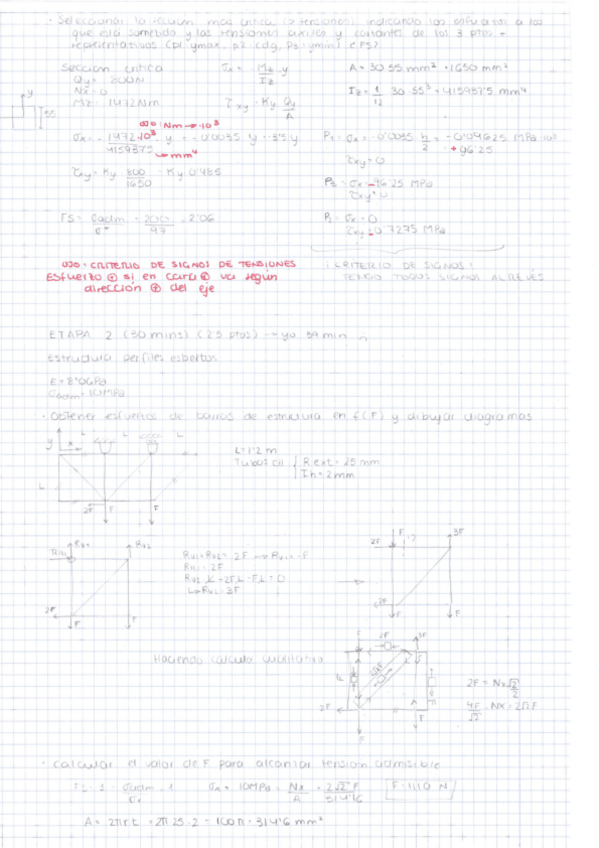 · Seleccionar la sección más crítica (> tensiones), indicando los esfuerzos a los
que está sometido y las tensiones axiles y cortante de los 3 ptos +
representativos (p1 ymax, p2 cdg, p3 ymin) c FS?
Sección crítica
Qy = 800N
Nx = 0
Mz = 1472Nm
σx = - Mz/Iz · y
τxy = Ky Qy/A
A = 30·55 mm² = 1650 mm²
Iz = 1/12 30·55³ = 415937'5 mm⁴
y
OJO Nm → ·10³
σx = - 1472·10³/415937'5 y = -0'0035 y -3'5 y
↳ mm⁴
P1 = σx = -0'0035 h/2 = -0'09625 MPa·10³
+ 96'25
τxy = 0
τxy = Ky · 800/1650 = Ky 0'485
P3 = σx = -96'25 MPa
τxy = 0
FS = σadm/σ* = 200/97 = 2'06
P2 = σx = 0
τxy = 0'7275 MPa
OJO · CRITERIO DE SIGNOS DE TENSIONES
Esfuerzo ⊕ si en cara ⊕ va según
dirección ⊕ del eje
¡CRITERIO DE SIGNOS!
TENGO TODOS SIGNOS AL REVÉS
ETAPA 2 (30 mins) (2'5 ptos) → yo 59 min
Estructura perfiles esbeltos
E = 8'0GPa
σadm = 10MPa
· Obtener esfuerzos de barras de estructura en f(F) y dibujar diagramas
y
x
L
L
L
L
2F
F
F
L = 1'2 m
Tubos cil { Rext = 25 mm
Th = 2mm
RH1
RV1
RV2
2F
F
F
RV1 + RV2 = 2F → RV1 = -F
RH1 = 2F
RV2 · L - 2F·L - F·L = 0
↳ RV2 = 3F
2F
F
3F
2F
F
F
Haciendo cálculo cualitativo
2F
3F
2F
F
F
2F = Nx √2/2
4F/√2 = Nx = 2√2 F
· Calcular el valor de F para alcanzar tensión admisible
σx = 10MPa = Nx/A = 2√2 F/314'16
F = 1110 N
A = 2πrt = 2π 25·2 = 100π = 314'16 mm²